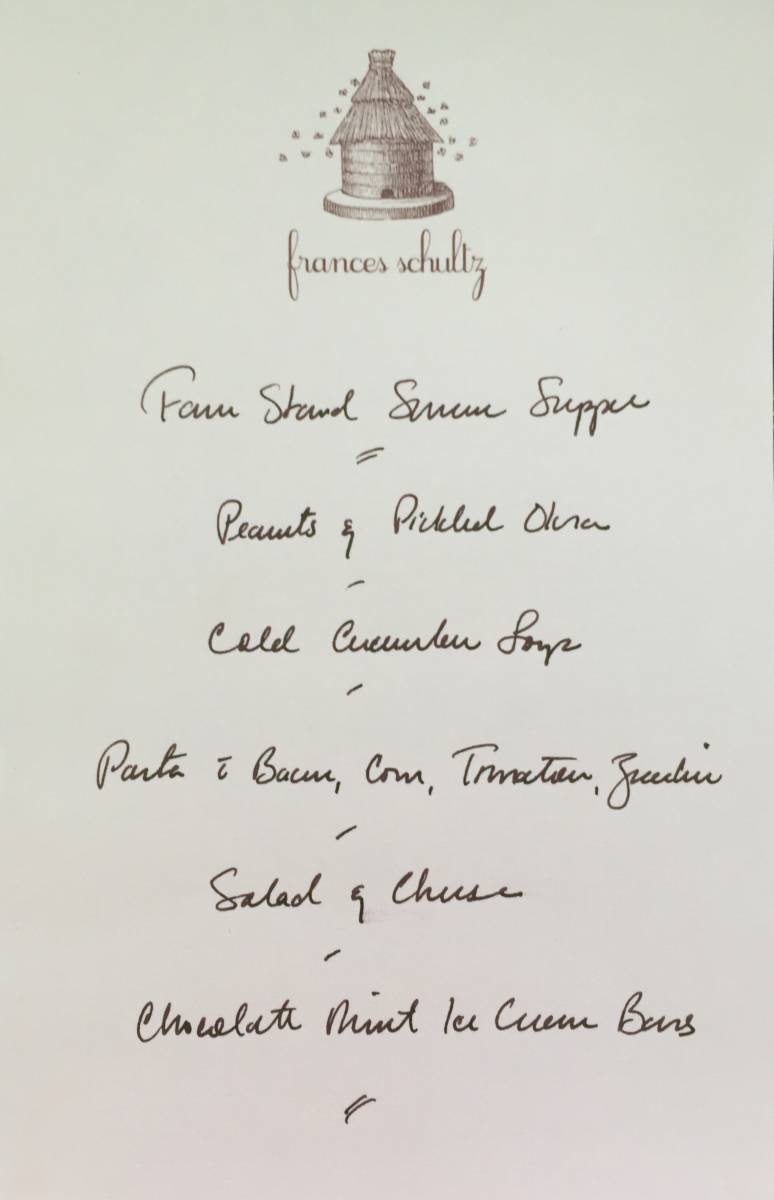 frances schultz
Farm Stand Summer Supper
Peanuts & Pickled Okra
Cold Cucumber Soup
Pasta c̄ Bacon, Corn, Tomatoes, Zucchini
Salad & Cheese
Chocolate Mint Ice Cream Bars